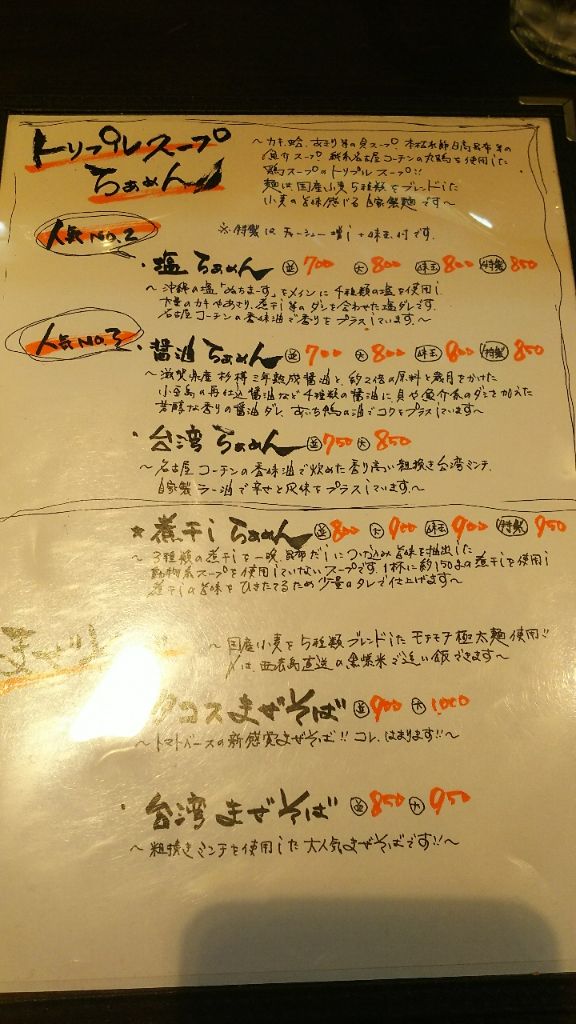 トリプルスープ
らぁめん
～カキ、蛤、あさり等の貝スープ、本枯本節日高昆布等の
魚介スープ、純系名古屋コーチンの丸鶏を使用した
鶏スープのトリプルスープ!!
麺は国産小麦5種類をブレンドした
小麦の旨味感じる自家製麺です～
人気No.2
※特製はチャーシュー増し+味玉付です。
・塩らぁめん 並700 大800 味玉800 特製850
～沖縄の塩「ぬちまーす」をメインに4種類の塩を使用し
大量のカキやあさり、煮干し等のダシを合わせた塩ダレです。
名古屋コーチンの香味油で香りをプラスしています。～
人気No3
・醤油らぁめん 並700 大800 味玉800 特製850
～滋賀県産杉樽三年熟成醤油と、約2倍の原料と歳月をかけた
小豆島の再仕込醤油など4種類の醤油に貝や魚介系のダシを加えた
芳醇な香りの醤油ダレ、あいち鴨の油でコクをプラスしています～
・台湾らぁめん 並750 大850
～名古屋コーチンの香味油で炒めた香り高い粗挽き台湾ミンチ、
自家製ラー油で辛さと風味をプラスしています。～
★煮干しらぁめん 並800 大900 味玉900 特製950
～3種類の煮干しを一晩、昆布だしにつけ込み旨味を抽出した
動物系スープを使用していないスープです。1杯に約150gの煮干しを使用し
煮干しの旨味をひきたてるため少量のタレで仕上げます～
～国産小麦を5種類ブレンドしたモチモチ極太麺使用!!
は、西表島直送の黒紫米で追い飯できます～
タコスまぜそば 並900 大1,000
～トマトベースの新感覚まぜそば!!コレ、はまります!!～
・台湾まぜそば 並850 大950
～粗挽きミンチを使用した大人気まぜそばです!!～